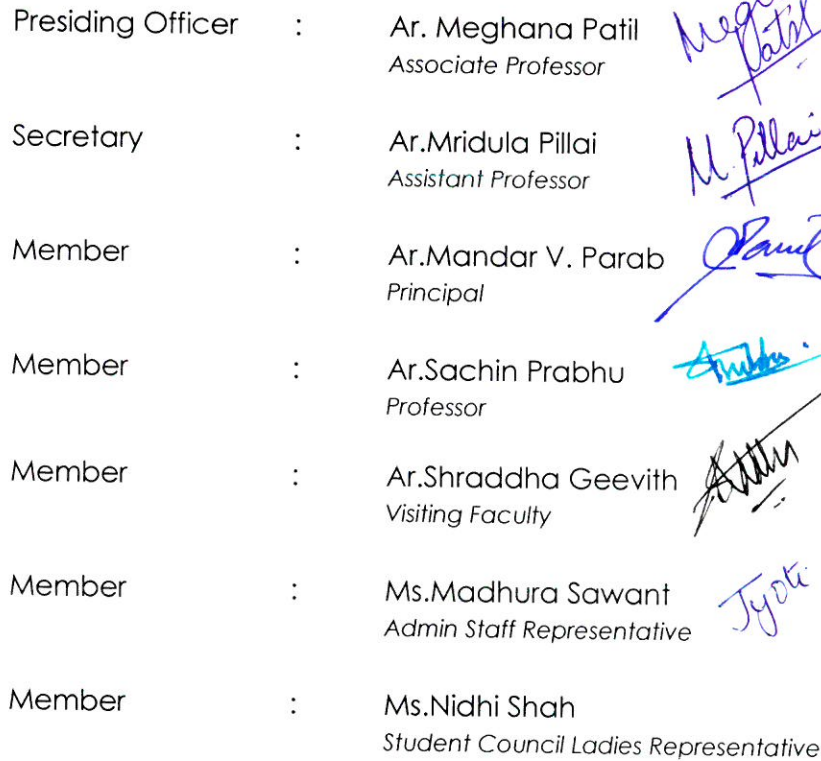 Presiding Officer : Ar. Meghana Patil
Associate Professor
Secretary : Ar.Mridula Pillai
M. Pillai
Assistant Professor
Member : Ar.Mandar V. Parab
Principal
Member : Ar.Sachin Prabhu
Professor
Member : Ar.Shraddha Geevith
Visiting Faculty
Member : Ms.Madhura Sawant
Jyoti
Admin Staff Representative
Member : Ms.Nidhi Shah
Student Council Ladies Representative